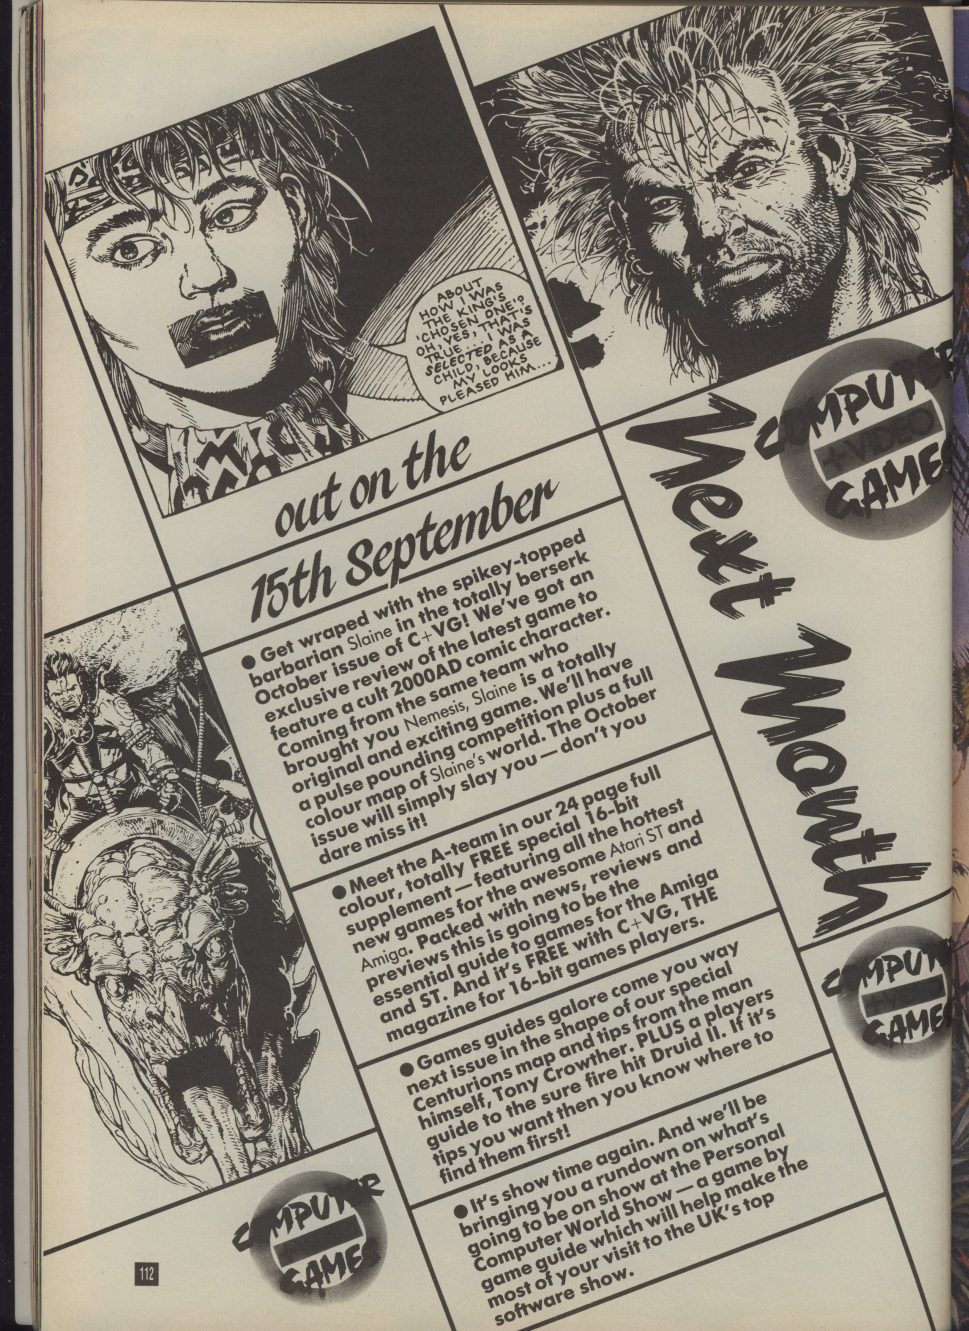 ABOUT
HOW I WAS
THE KING'S
'CHOSEN ONE'?
OH, YES, THAT'S
TRUE... I WAS
SELECTED AS A
CHILD, BECAUSE
MY LOOKS
PLEASED HIM...
COMPUTER
+VIDEO
GAMES
Next Month
out on the
15th September
● Get wraped with the spikey-topped
barbarian Slaine in the totally berserk
October issue of C+VG! We've got an
exclusive review of the latest game to
feature a cult 2000AD comic character.
Coming from the same team who
brought you Nemesis, Slaine is a totally
original and exciting game. We'll have
a pulse pounding competition plus a full
colour map of Slaine's world. The October
issue will simply slay you — don't you
dare miss it!
● Meet the A-team in our 24 page full
colour, totally FREE special 16-bit
supplement — featuring all the hottest
new games for the awesome Atari ST and
Amiga. Packed with news, reviews and
previews this is going to be the
essential guide to games for the Amiga
and ST. And it's FREE with C+VG, THE
magazine for 16-bit games players.
● Games guides galore come you way
next issue in the shape of our special
Centurions map and tips from the man
himself, Tony Crowther. PLUS a players
guide to the sure fire hit Druid II. If it's
tips you want then you know where to
find them first!
● It's show time again. And we'll be
bringing you a rundown on what's
going to be on show at the Personal
Computer World Show — a game by
game guide which will help make the
most of your visit to the UK's top
software show.
COMPUTER
+VIDEO
GAMES
COMPUTER
GAMES
112